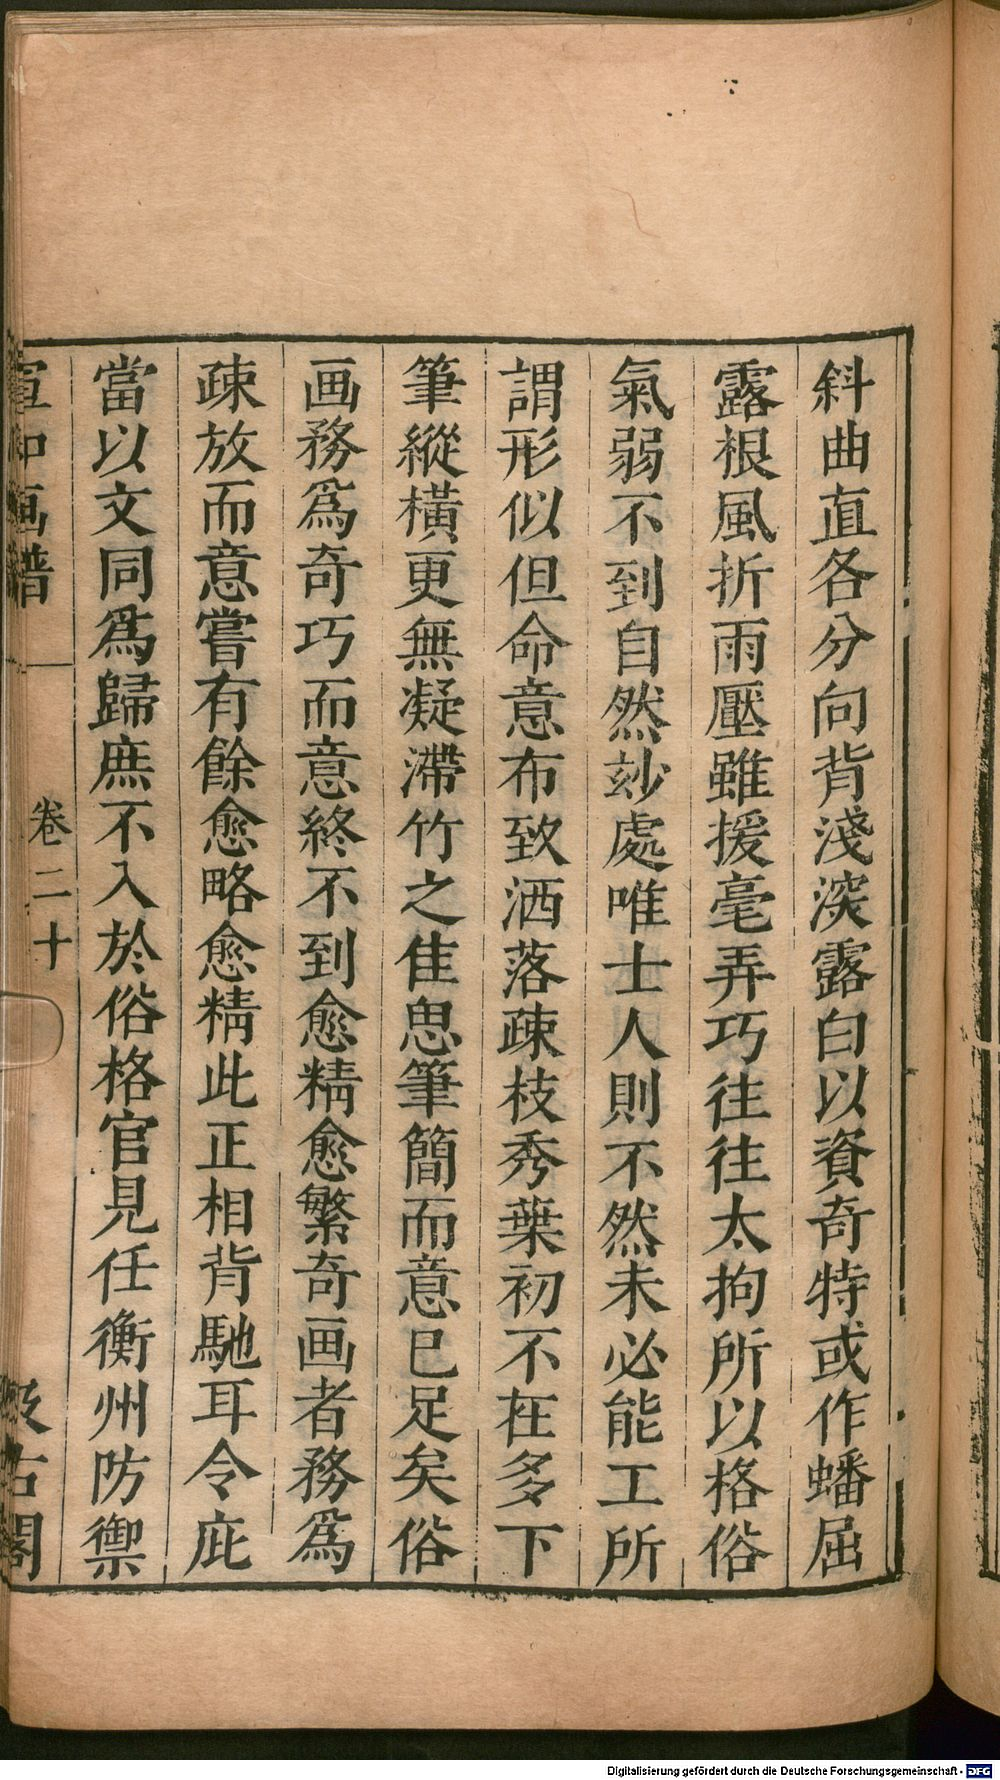 斜曲直各分向背淺深露白以資奇特或作蟠屈
露根風折雨壓雖援毫弄巧往往太拘所以格俗
氣弱不到自然玅處唯士人則不然未必能工所
謂形似但命意布致洒落疎枝秀葉初不在多下
筆縱橫更無凝滯竹之佳思筆簡而意已足矣俗
画務爲奇巧而意終不到愈精愈繁奇画者務爲
疎放而意嘗有餘愈略愈精此正相背馳耳令庇
當以文同爲歸庶不入於俗格官見任衡州防禦
宣和画譜
卷二十
汲古閣
Digitalisierung gefördert durch die Deutsche Forschungsgemeinschaft - DFG